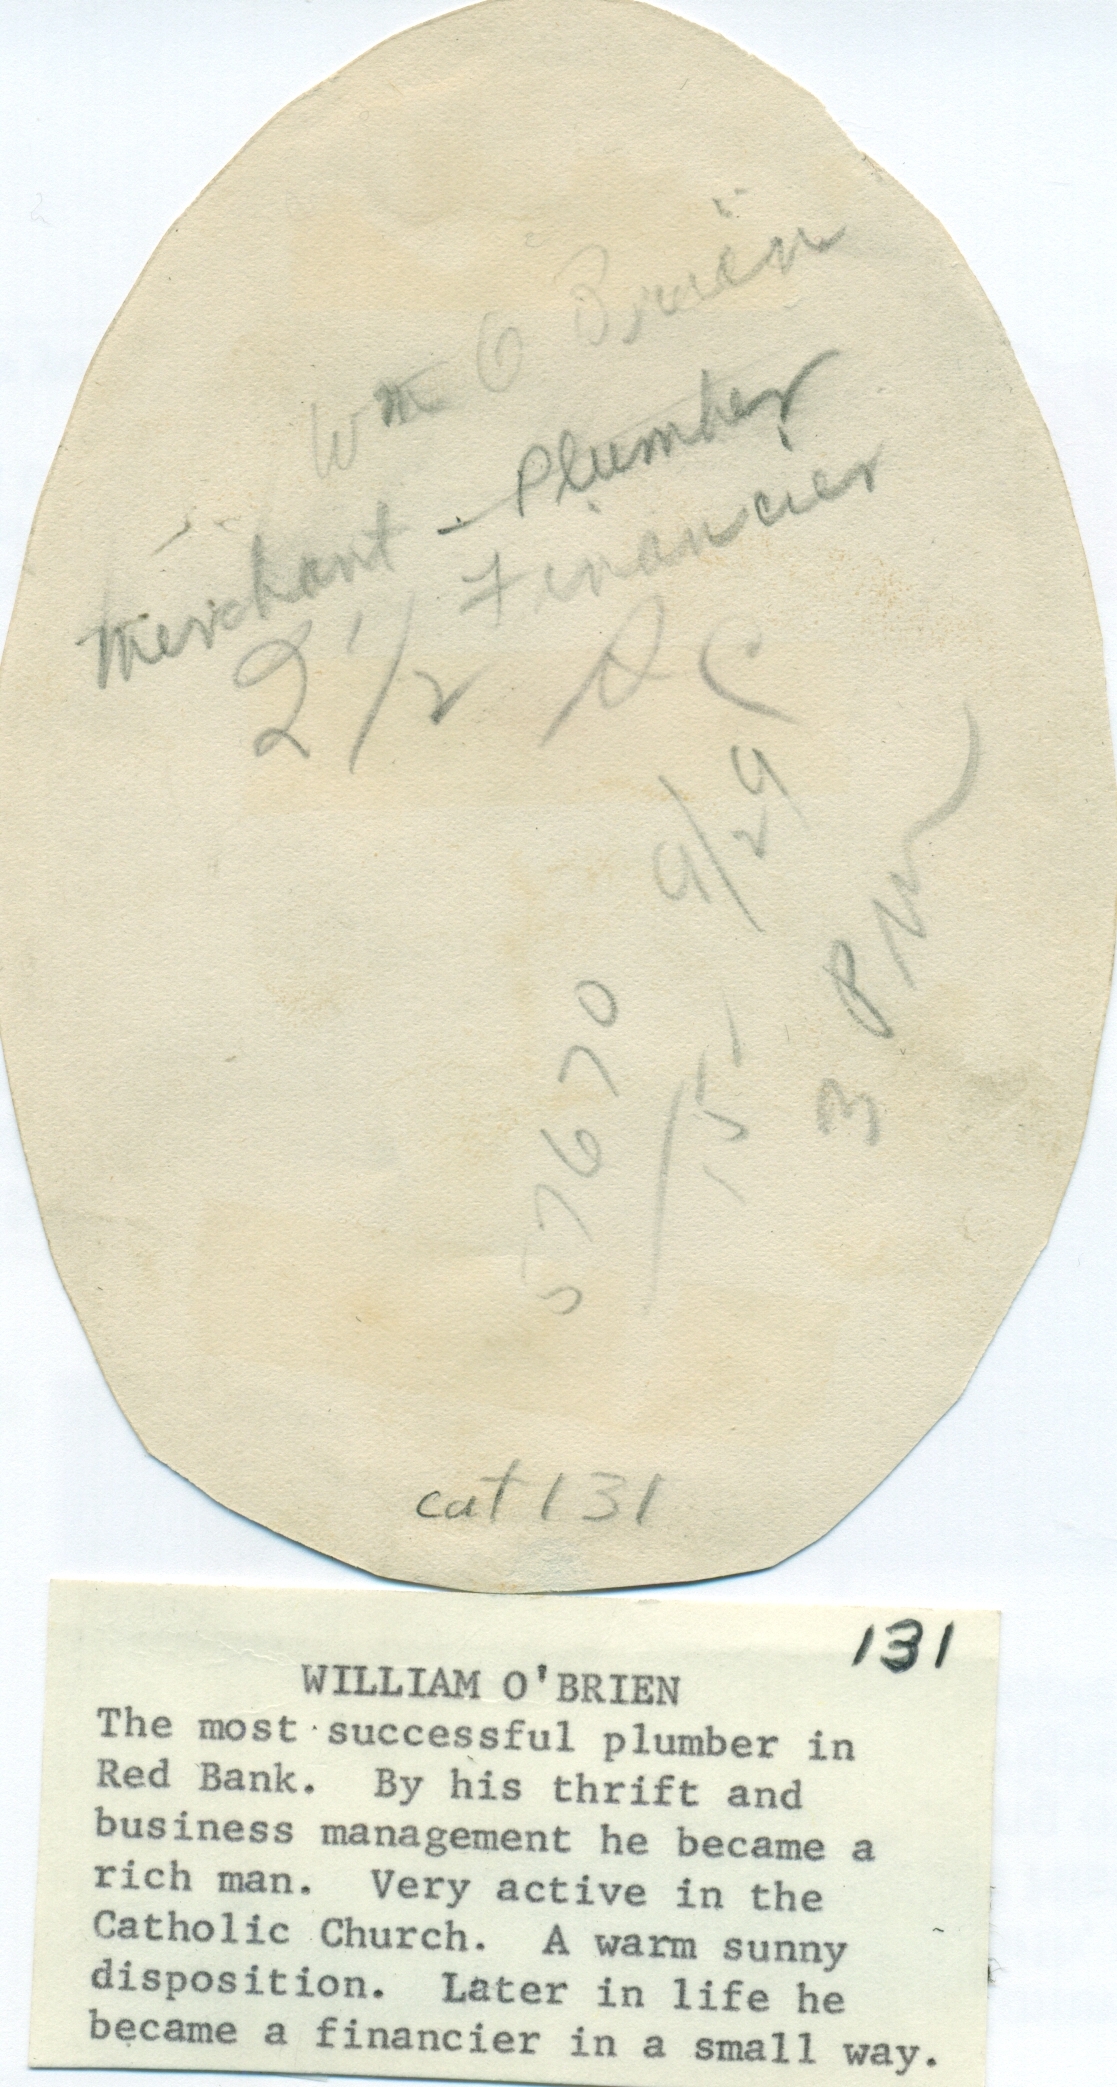 Wm O Brien
Merchant - Plumber
Financier
2 1/2 SC
9/29
3 PM
57670
cat 131
131
WILLIAM O'BRIEN
The most successful plumber in
Red Bank. By his thrift and
business management he became a
rich man. Very active in the
Catholic Church. A warm sunny
disposition. Later in life he
became a financier in a small way.